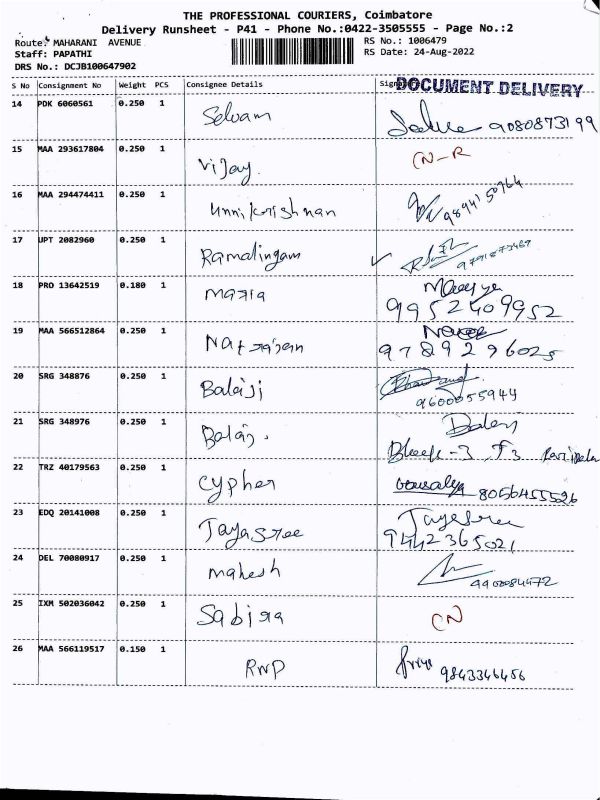 THE PROFESSIONAL COURIERS, Coimbatore
Delivery Runsheet - P41 - Phone No.:0422-3505555 - Page No.:2
Route: MAHARANI AVENUE
RS No.: 1006479
Staff: PAPATHI
RS Date: 24-Aug-2022
DRS No.: DCJB100647902
S No Consignment No Weight PCS Consignee Details
DOCUMENT DELIVERY
14 PDK 6060561 0.250 1 Selvam 9080873199
15 MAA 293617804 0.250 1 Vijay CN-R
16 MAA 294474411 0.250 1 unnikrishnan
17 UPT 2082960 0.250 1 Ramalingam
18 PRO 13642519 0.180 1 maria 9952409952
19 MAA 566512864 0.250 1 Natrajan 9789296025
20 SRG 348876 0.250 1 Balaji 9600055944
21 SRG 348976 0.250 1 Balaj. Block-3
22 TRZ 40179563 0.250 1 Cypher Gousalya 8056455526
23 EDQ 20141008 0.250 1 Jayasree Jayasree
9442365021
24 DEL 70080917 0.250 1 mahesh
25 IXM 502036042 0.250 1 Sabira CN
26 MAA 566119517 0.150 1 RWP Priya 9843346456